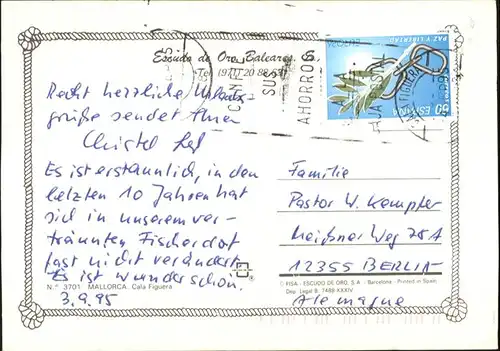 Escudo de Oro Baleares
Recht herzliche Urlaubs-
grüße sendet Ihnen
Christel
Es ist erstaunlich, in den
letzten 10 Jahren hat
sich in unserem ver-
träumten Fischerdorf
fast nicht verändert.
Es ist wunderschön.
3.9.95
N.º 3701 MALLORCA. Cala Figuera
PAZ Y LIBERTAD
60 ESPAÑA
AHORROS
Familie
Pastor W. Kempfer
Meißner Weg 78A
12355 BERLIN
Alemagne
© FISA - ESCUDO DE ORO, S.A. - Barcelona - Printed in Spain
Dep. Legal B. 7488-XXXIV